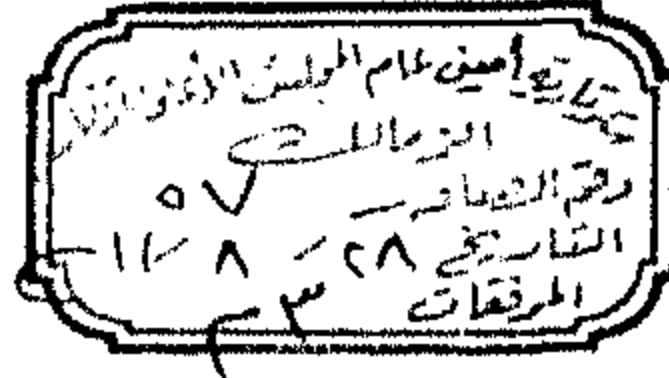 سكرتارية أمين عام المجلس الأعلى للآثار
الزمالك
رقم الصادر ٥٧
التاريخ ٢٨ / ٨ / ١١
المرفقات ٣